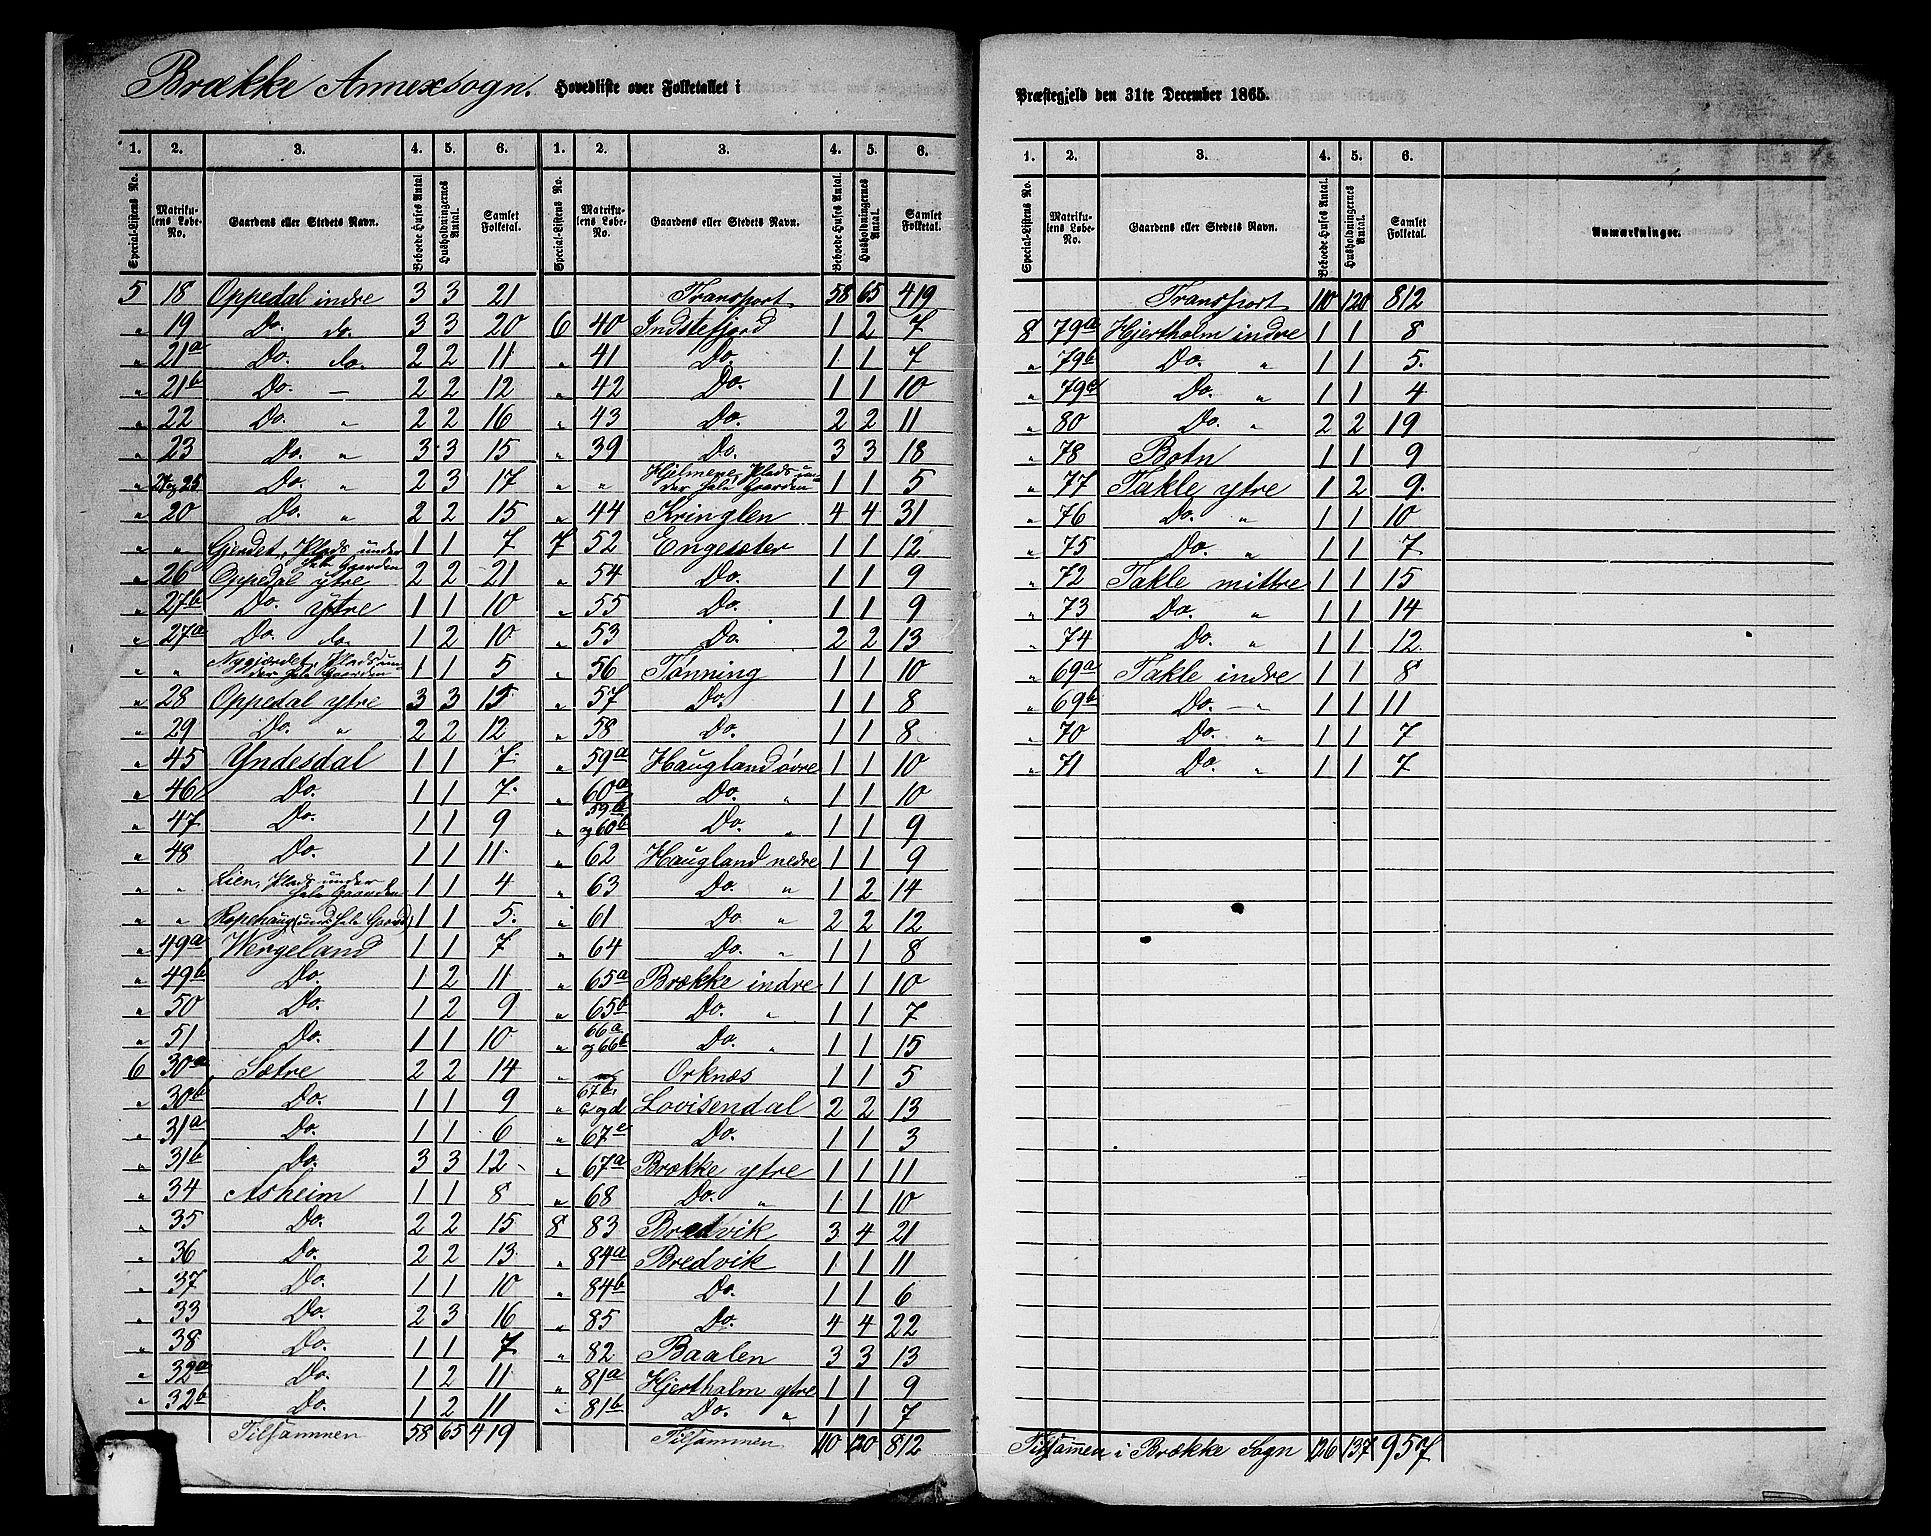 Brække Annexsogn. Hovedliste over Folketallet i
Præstegjeld den 31te December 1865.
1. 2. 3. 4. 5. 6.
Special-Listens No. Matrikulens Løbe-No. Gaardens eller Stedets Navn. Beboede Huses Antal Husholdningernes Antal. Samlet Folketal.
5 18 Oppedal indre 3 3 21
" 19 Do. do. 3 3 20
" 21a Do. do. 2 2 11
" 21b Do. — 2 2 12
" 22 Do. " 2 2 16
" 23 Do. " 3 3 15
" 24 og 25 Do. " 2 3 17
" 20 Do. " 2 2 15
" " Gjerdet, Plads under hele Gaarden 1 1 7
" 26 Oppedal ytre 2 2 21
" 27b Do. ytre 1 1 10
" 27a Do. do. 1 2 10
" " Nygjærdet, Plads under hele Gaarden 1 1 5
" 28 Oppedal ytre 3 3 15
" 29 Do. " 2 2 12
" 45 Yndesdal 1 1 7
" 46 Do. 1 1 7
" 47 Do. 1 1 9
" 48 Do. 1 1 11
" " Lien, Plads under hele Gaarden 1 1 4
" " Ropehaug (und. hele Gaard) 1 1 5.
" 49a Wergeland 1 1 7
" 49b Do. 1 2 11
" 50 Do. 1 2 9
" 51 Do. 1 1 10
6 30a Sætre 2 2 14
" 30b Do. 1 1 9
" 31a Do. 1 1 6
" 31b Do. 3 3 12
" 34 Asheim 1 1 8
" 35 Do. 2 2 15
" 36 Do. 2 2 13
" 37 Do. 1 1 10
" 33 Do. 2 3 16
" 38 Do. 1 1 7
" 32a Do. 1 2 11
" 32b Do. 1 2 11
Tilsammen 58 65 419
1. 2. 3. 4. 5. 6.
Special-Listens No. Matrikulens Løbe-No. Gaardens eller Stedets Navn. Beboede Huses Antal. Husholdningernes Antal. Samlet Folketal.
Transport 58 65 419
6 40 Indstefjord 1 2 7
" 41 Do. 1 1 7
" 42 Do. 1 1 10
" 43 Do. 2 2 11
" 39 Do. 3 3 18
" " Hjelmene, Plads under hele Gaarden 1 1 5
" 44 Kringlen 4 4 31
7 52 Engesæter 1 1 12
" 54 Do. 1 1 9
" 55 Do. 1 1 9
" 53 Do. 2 2 13
" 56 Tønning 1 1 10
" 57 Do. 1 1 8
" 58 Do. 1 1 8
" 59a Haugland øvre 1 1 10
" 60a Do. " 1 1 10
" 59b og 60b Do. " 1 1 9
" 62 Haugland nedre 1 1 9
" 63 Do. " 1 2 14
" 61 Do. " 2 2 12
" 64 Do. " 1 1 8
" 65a Brække indre 1 1 10
" 65b Do. " 1 1 7
" 66a og 66b Do. " 1 1 15
" Orknæs 1 1 5
" 67b, c og d Lovisendal 2 2 13
" 67e Do. 1 1 3
" 67a Brække ytre 1 1 11
" 68 Do. " 1 1 10
8 83 Bredvik 3 4 21
" 84a Bredvik 1 1 11
" 84b Do. 1 1 6
" 85 Do. 4 4 22
" 82 Baalen 3 3 13
" 81a Hjertholm ytre 1 1 9
" 81b Do. " 1 1 7
Tilsammen 110 120 812
1. 2. 3. 4. 5. 6.
Special-Listens No. Matrikulens Løbe-No. Gaardens eller Stedets Navn. Beboede Huses Antal. Husholdningernes Antal. Samlet Folketal. Anmærkninger.
Transport 110 120 812
8 79a Hjertholm indre 1 1 8
" 79b Do. " 1 1 5.
" 79c Do. " 1 1 4
" 80 Do. " 2 2 19
" 78 Botn 1 1 9
" 77 Takle ytre 1 2 9.
" 76 Do. " 1 1 10
" 75 Do. " 1 1 7
" 72 Takle mittre 1 1 15
" 73 Do. " 1 1 14
" 74 Do. " 1 1 12
" 69a Takle indre 1 1 8
" 69b Do. — " 1 1 11
" 70 Do. " 1 1 7
" 71 Do. " 1 1 7
Tilsammen i Brække Sogn 126 137 957